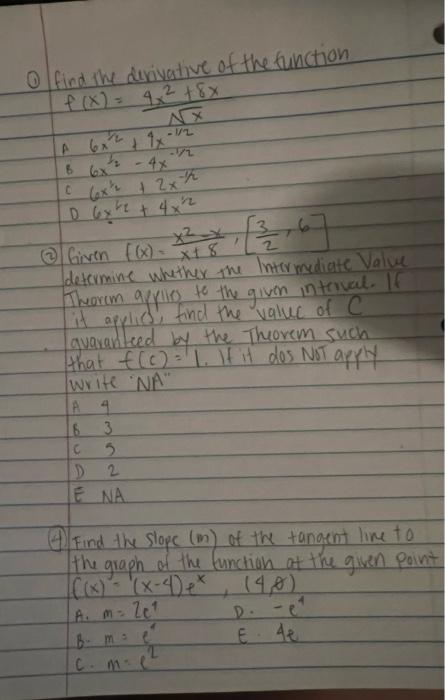 ① find the derivative of the function
f(x) = 4x² + 8x / √x
A 6x^1/2 + 4x^-1/2
B 6x^1/2 - 4x^-1/2
C 6x^1/2 + 2x^-1/2
D 6x^1/2 + 4x^1/2
② Given f(x) = x² - x / x + 8 , [3/2, 6]
determine whether the Intermediate Value
Theorem applies to the given interval. If
it applies, find the value of C
guaranteed by the Theorem such
that f(c) = 1. If it dos NOT apply
write "NA"
A 4
B 3
C 5
D 2
E NA
④ Find the slope (m) of the tangent line to
the graph of the function at the given point
f(x) = (x-4)e^x , (4,0)
A. m = 2e⁴
D. -e⁴
B. m = e⁴
E. 4e
C. m = e²